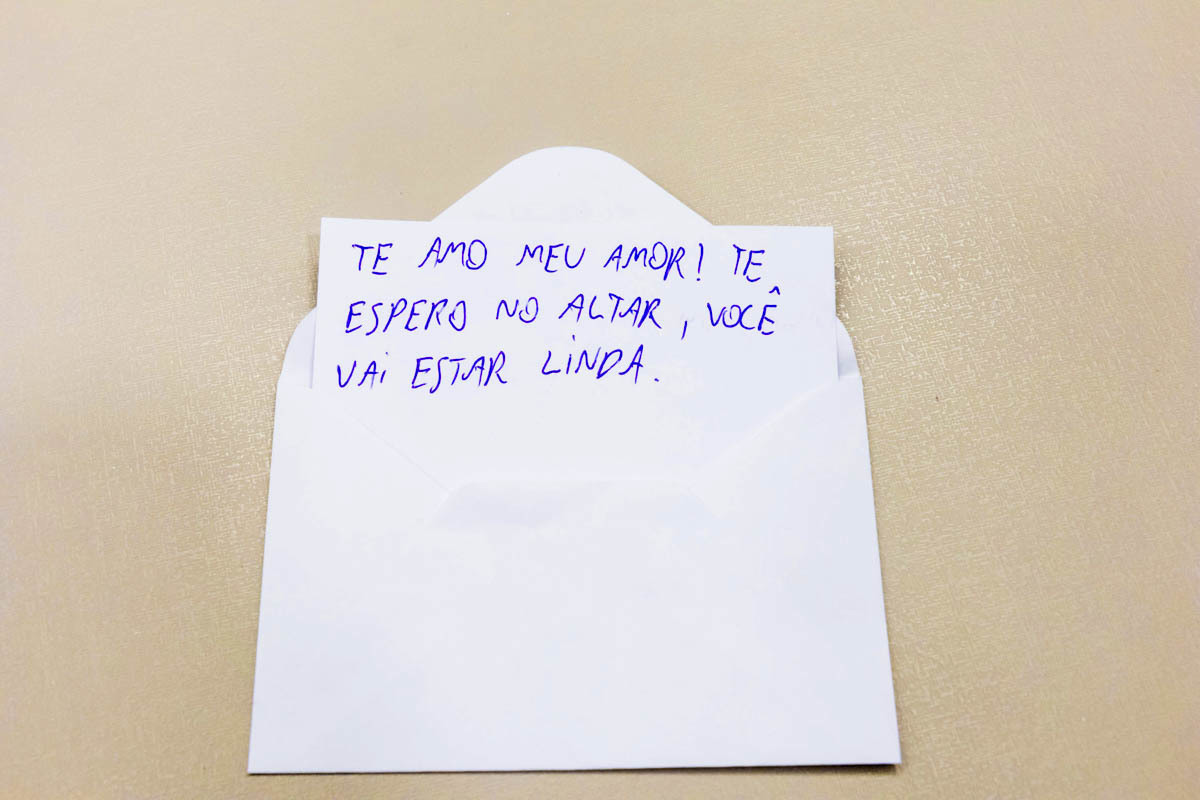 TE AMO MEU AMOR! TE
ESPERO NO ALTAR, VOCÊ
VAi ESTAR LiNDA.